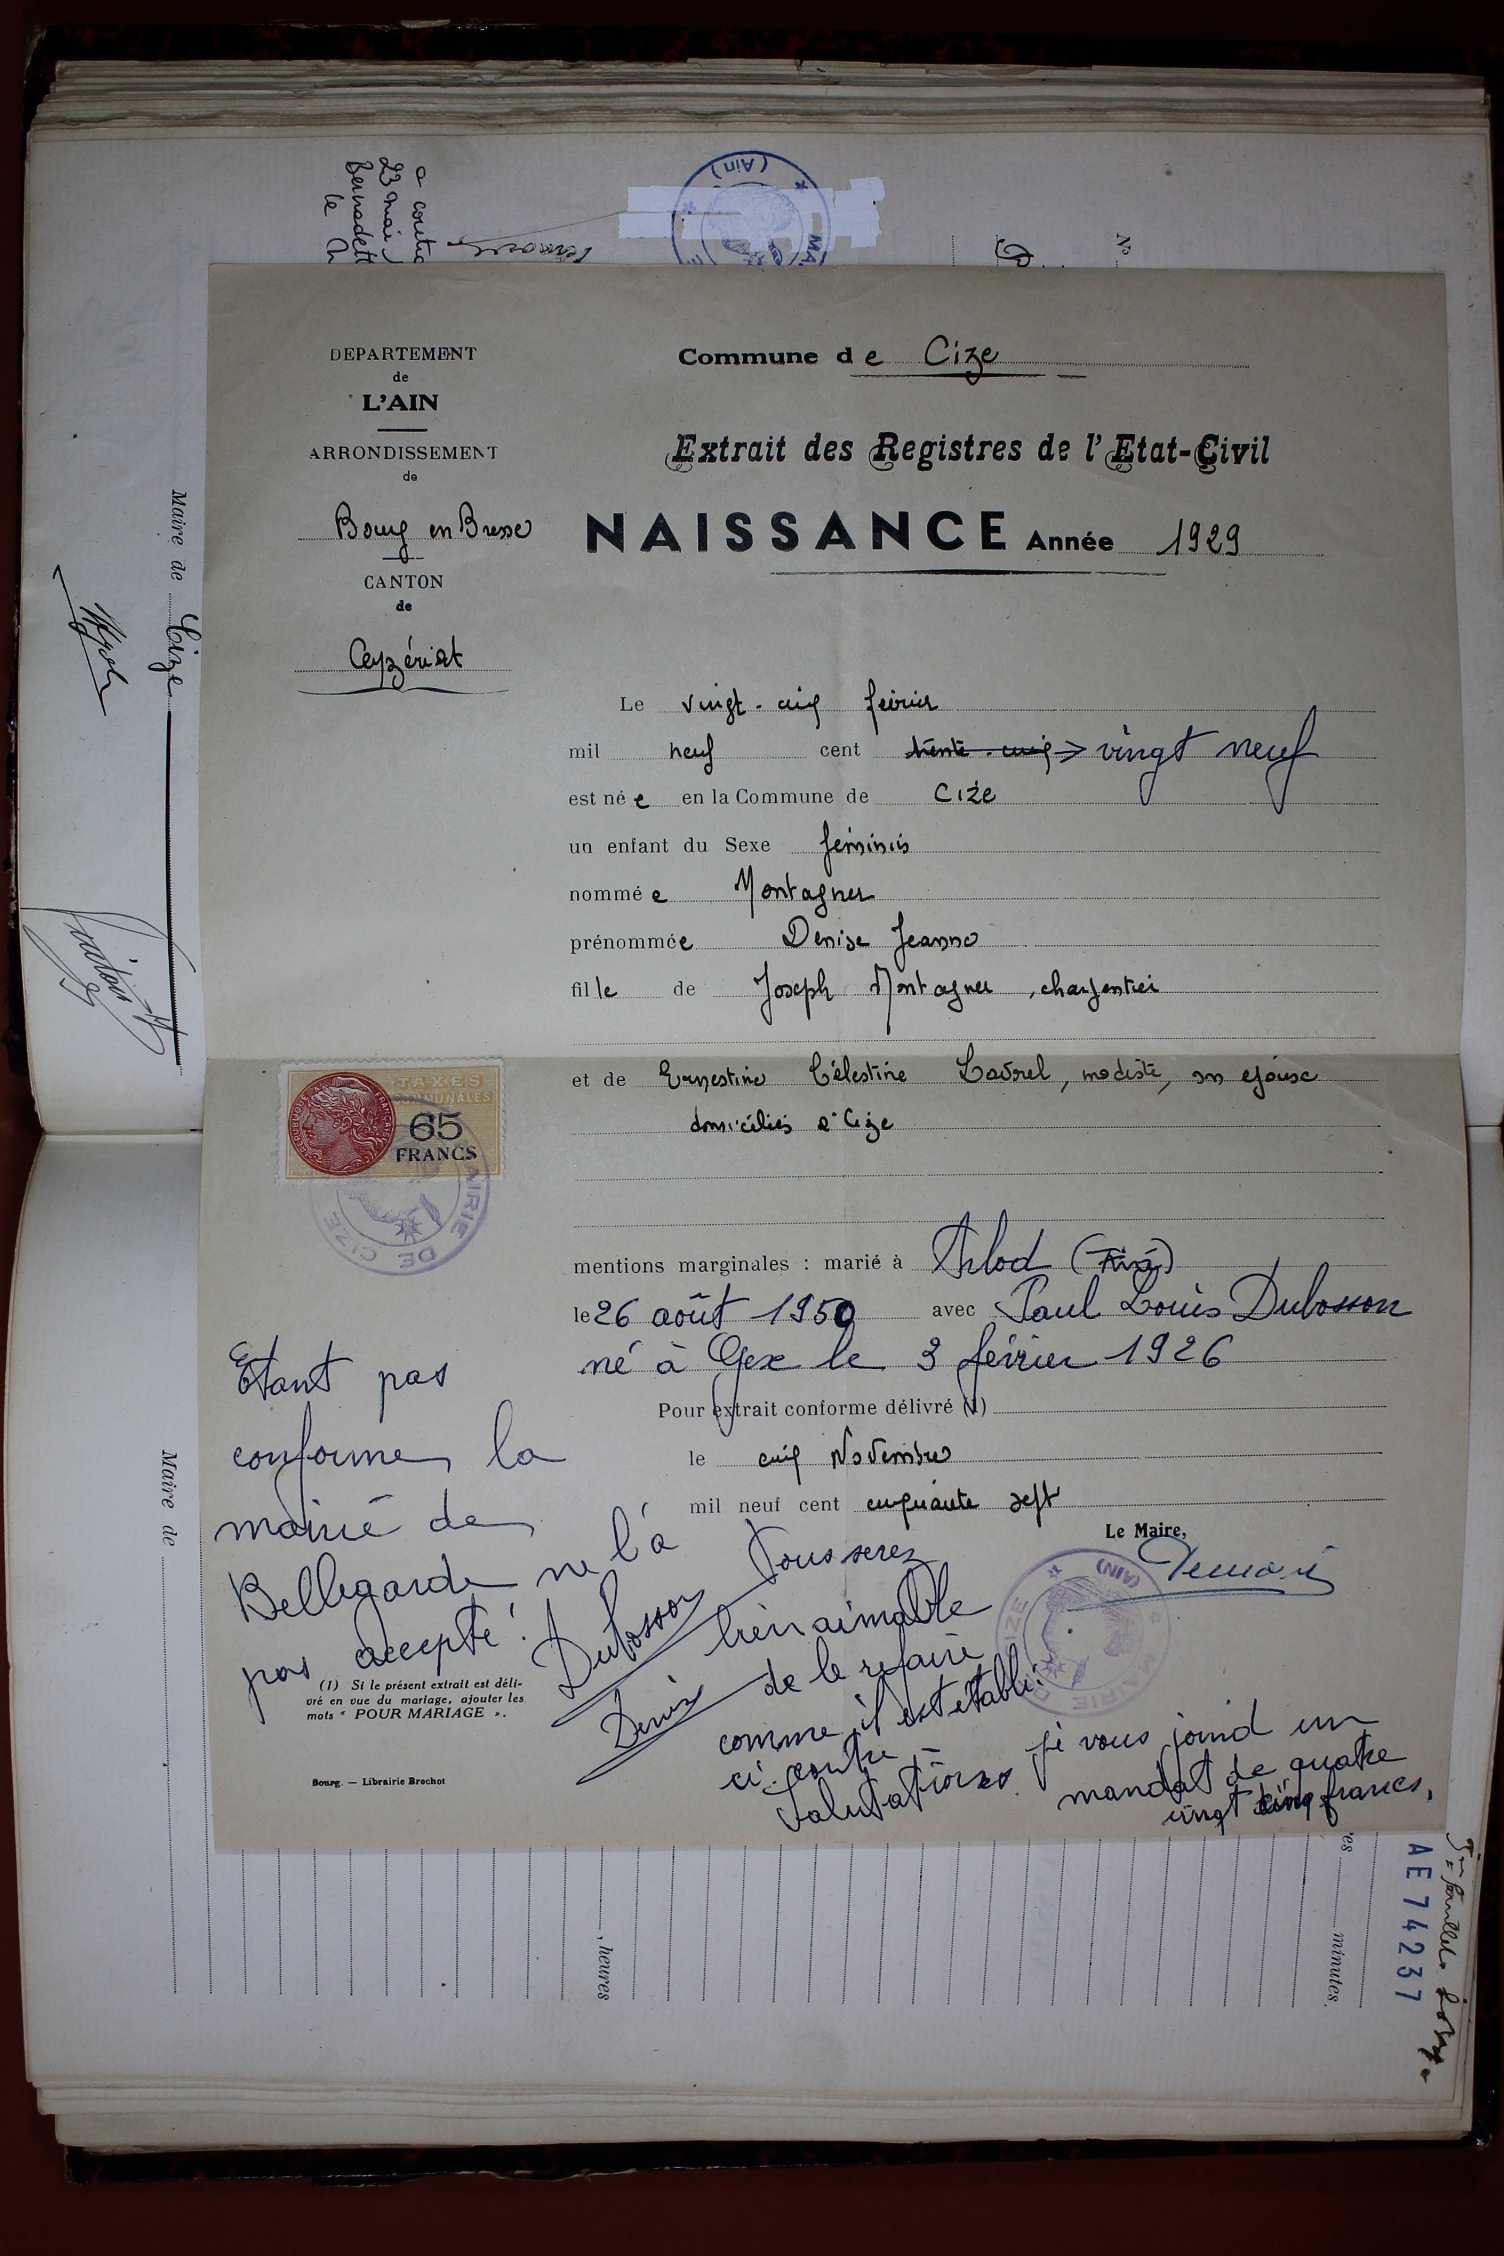 a contrac
23 mai
Bernadett
le
(Ain)
MA
No
Maire de Cize
DEPARTEMENT
de
L'AIN
ARRONDISSEMENT
de
Bourg en Bresse
CANTON
de
Ceyzériat
Commune de Cize
Extrait des Registres de l'Etat-Civil
NAISSANCE Année 1929
Le vingt-cinq février
mil neuf cent trente-cinq → vingt neuf
est née en la Commune de Cize
un enfant du Sexe féminin
nommée Montagner
prénommée Denise Jeanne
fille de Joseph Montagner, charpentier
et de Ernestine Célestine, modiste, son épouse
domiciliés à Cize
TAXES
COMMUNALES
REPUBLIQUE FRANCAISE
65
FRANCS
MAIRIE DE CIZE
mentions marginales : marié à Arlod (Ain)
le 26 août 1950 avec Paul Louis Dubosson
né à Gex le 3 février 1926
Pour extrait conforme délivré (1)
le cinq Novembre
mil neuf cent cinquante sept
Le Maire,
MAIRIE DE CIZE (AIN)
Etant pas
conforme, la
mairie de
Bellegarde ne l'a
pas accepté !
Dubosson
Denise
Vous serez
bien aimable
de le refaire
comme il est établi
ci-contre -
Salutations.
je vous joind un
mandat de quatre
vingt cinq francs.
(1) Si le présent extrait est déli-
vré en vue du mariage, ajouter les
mots " POUR MARIAGE ".
Bourg. — Librairie Brochot
Maire de
, heures
res minutes.
AE74237